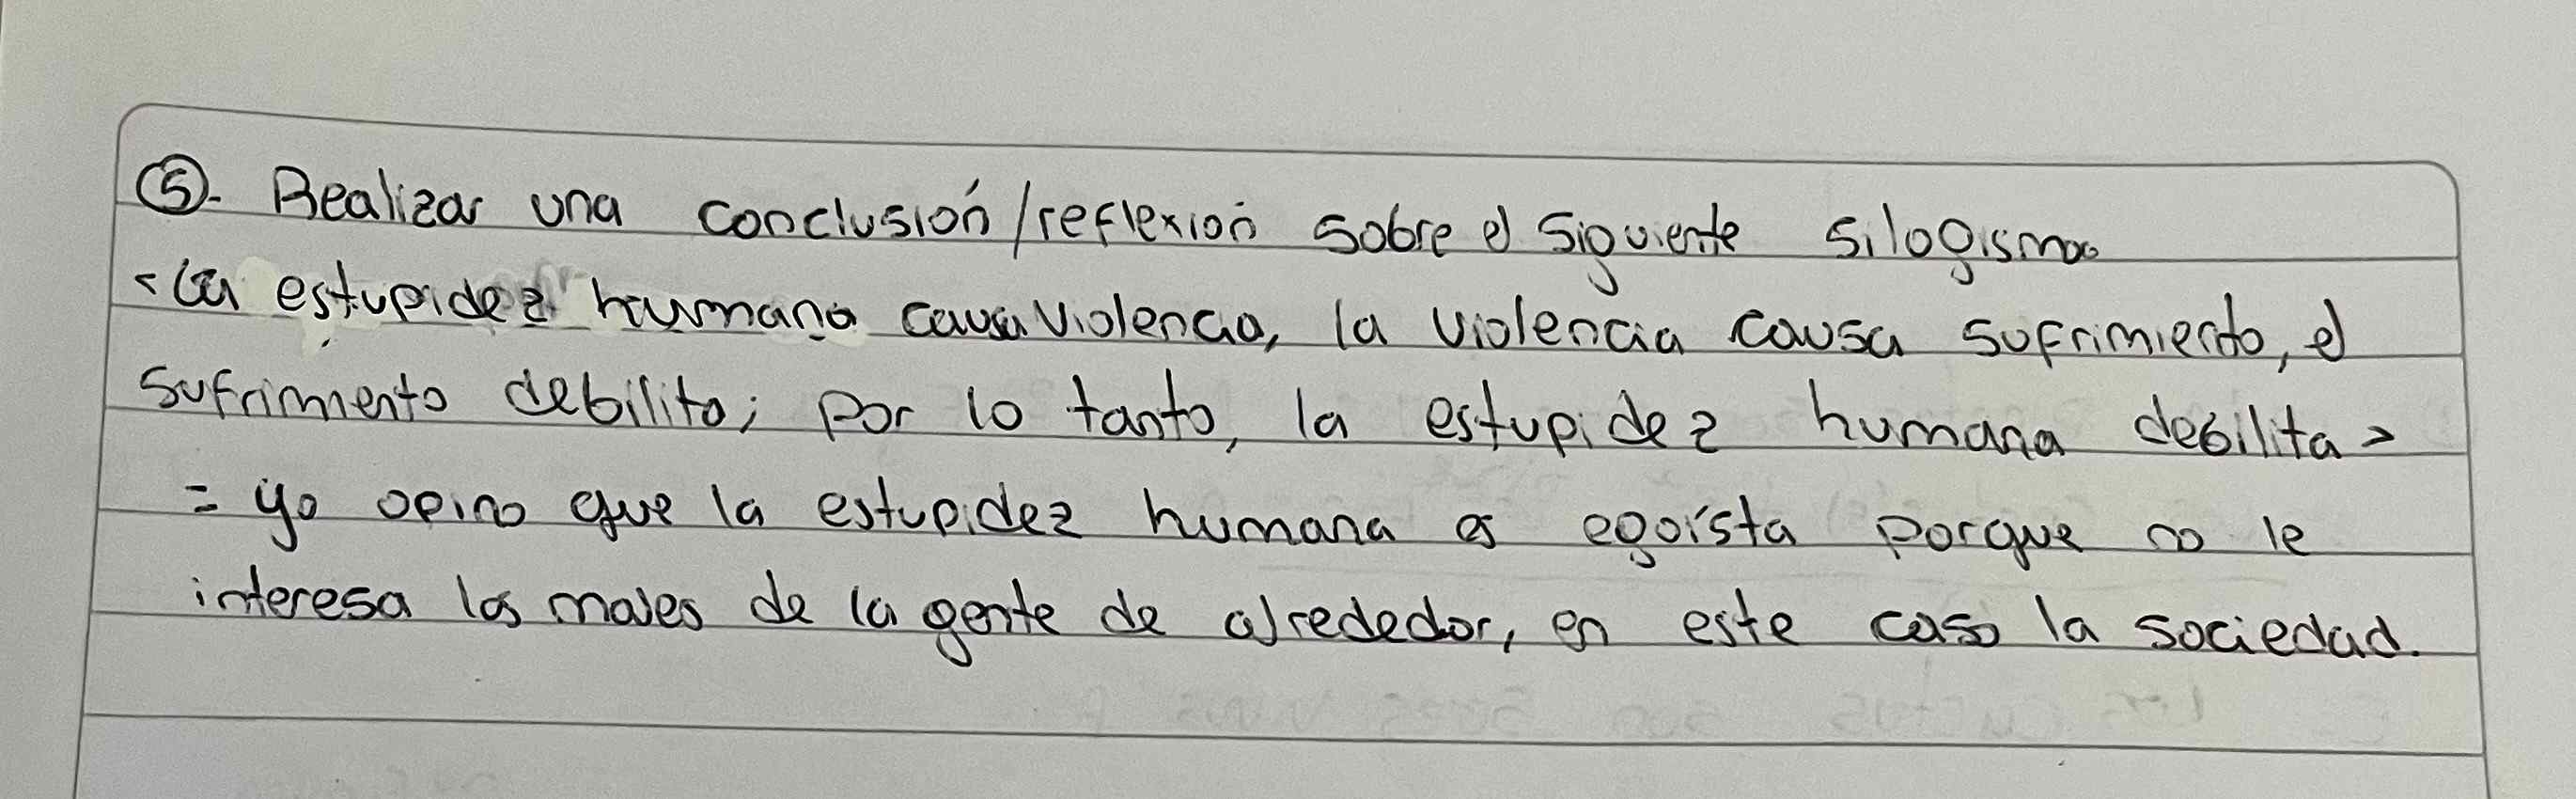 ⑤. Realizar una conclusión/reflexión sobre el siguiente silogismo
<la estupidez humana causa violencia, la violencia causa sufrimiento, el
sufrimiento debilita; por lo tanto, la estupidez humana debilita>
= yo opino que la estupidez humana es egoísta porque no le
interesa los males de la gente de alrededor, en este caso la sociedad.